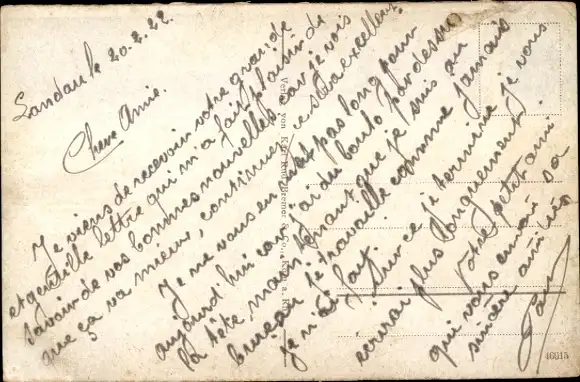 Landau le 20.2.22
Chere Annie.
Je viens de recevoir votre grande
et gentille lettre qui m'a fait plaisir de
savoir de vos bonnes nouvelles car je vois
que ça va mieux, continuez ce sera excellent.
Je ne vous en met pas long pour
aujourd'hui car j'ai du boulo pardessus
la tête maintenant que je suis au
bureau je travaille comme jamais
je n'ai fait. Sur ce je termine je vous
ecrirai plus longuement.
Votre petit ami
qui vous envoie sa
sincère amitiée
Verlag von Karl Rud. Bremer & Co., Köln a. Rh.
46015